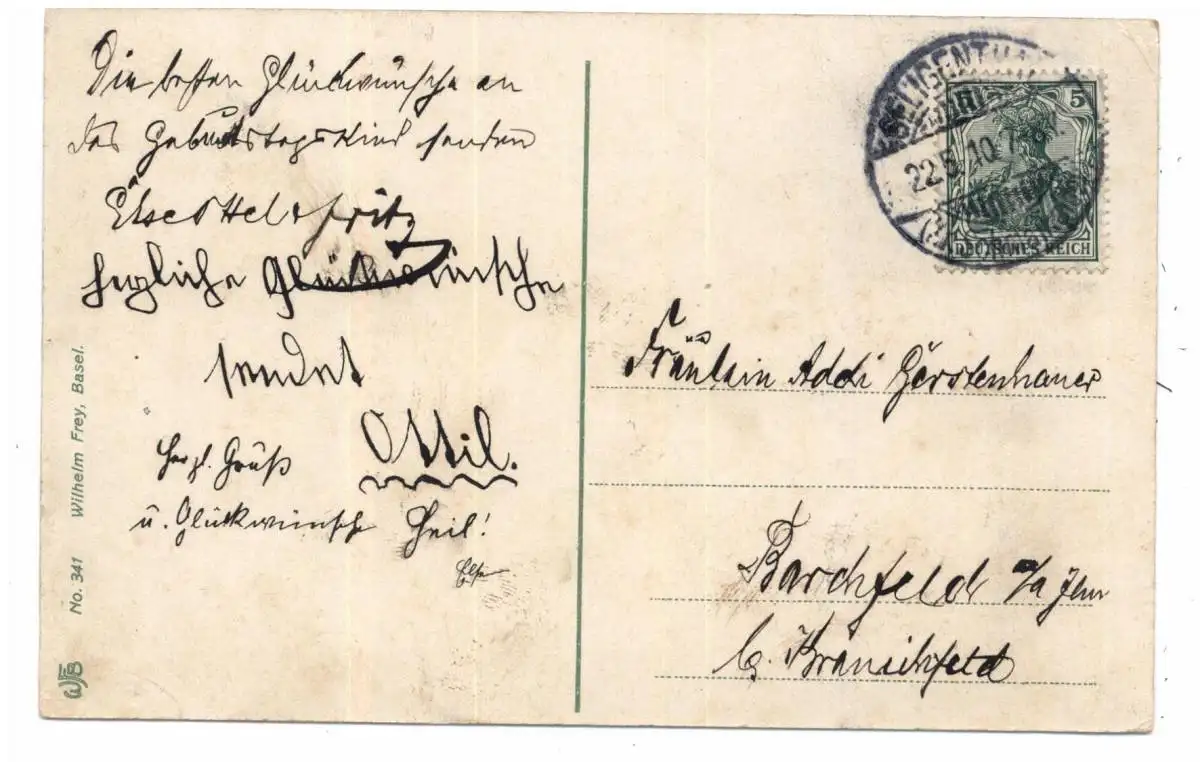 Die besten Glückwünsche an
das Geburtstagskind senden
Else Ottel + Fritz
herzliche Glückwünsche
sendet
Ottil.
herzl. Grüß
u. Glückwünsche Heil!
Else
No. 341 Wilhelm Frey, Basel.
WFB
SELIGENTHAL
22.5.10.7
5
DEUTSCHES REICH
Fräulein Addi Gerstenhauer
Barchfeld a/a Ilm
b. Kranichfeld